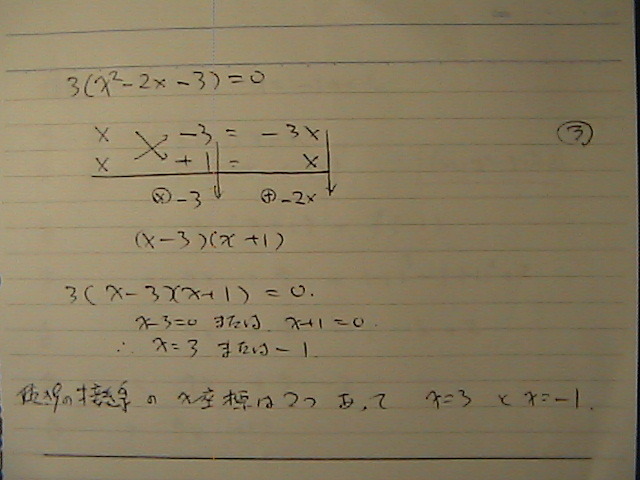 3(x²-2x-3)=0
③
x -3 = -3x
x +1 = x
⊗-3 ⊕-2x
(x-3)(x+1)
3(x-3)(x+1)=0.
x-3=0 または x+1=0.
∴ x=3 または -1
の接線の x座標は2つ あって x=3 と x=-1.